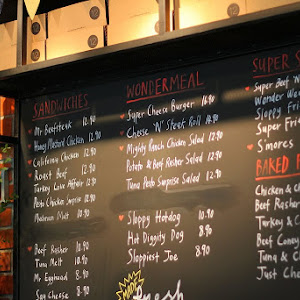 SANDWICHES
Mr Beefsteak 12.90
Honey Mustard Chicken 12.90
California Chicken 12.90
Roast Beef 12.90
Turkey Love Affair 12.90
Pesto Chicken Surprise 10.90
Meatroom Melt 10.90
Beef Rasher 10.90
Tuna Melt 10.90
Mr Egghead 8.90
Say Cheese 8.90
WONDERMEAL
Super Cheese Burger 16.90
Cheese 'N' Steak Roll 16.90
Mighty Ranch Chicken Salad 12.90
Potato & Beef Rasher Salad 12.90
Tuna Pesto Surprise Salad 12.90
Sloppy Hotdog 10.90
Hot Diggity Dog 8.90
Sloppiest Joe 8.90
Fresh
SUPER S
Super Beef
Wonder
Sloppy Fri
Super Frie
S'mores
BAKED
Chicken &
Beef Rasher
Turkey &
Beef
Tuna & C
Just Che